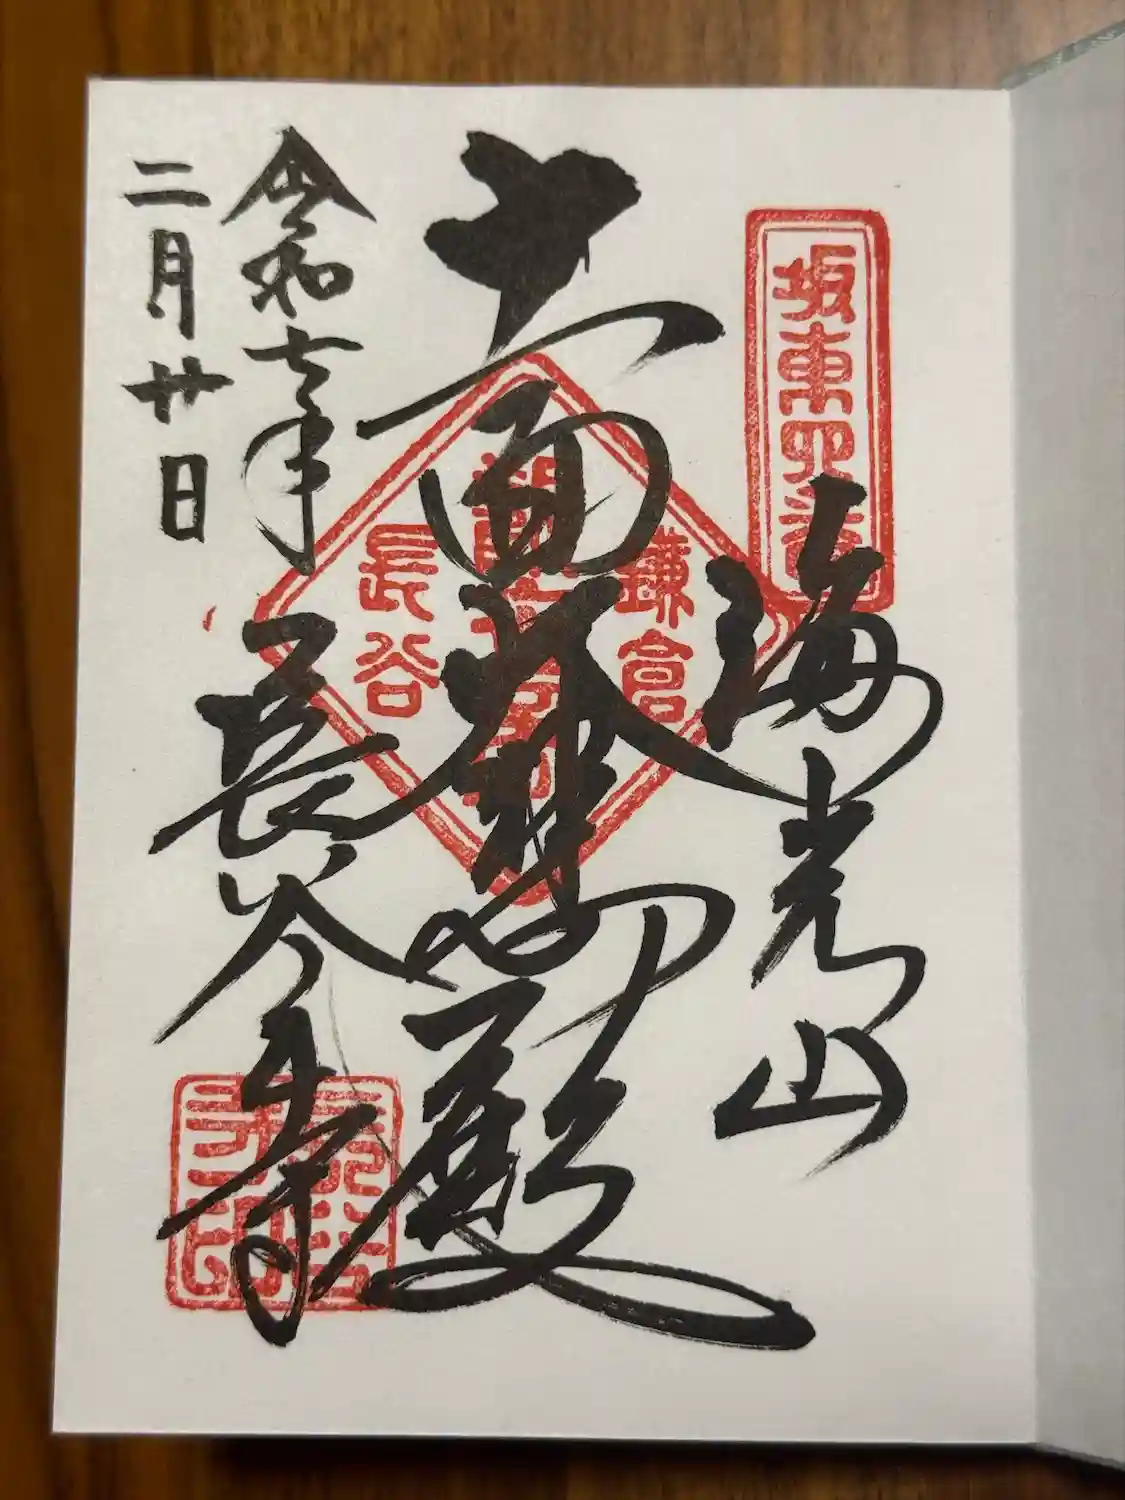 坂東四番
海光山
十一面大悲殿
鎌倉
長谷
長谷寺
令和七年
二月廿日